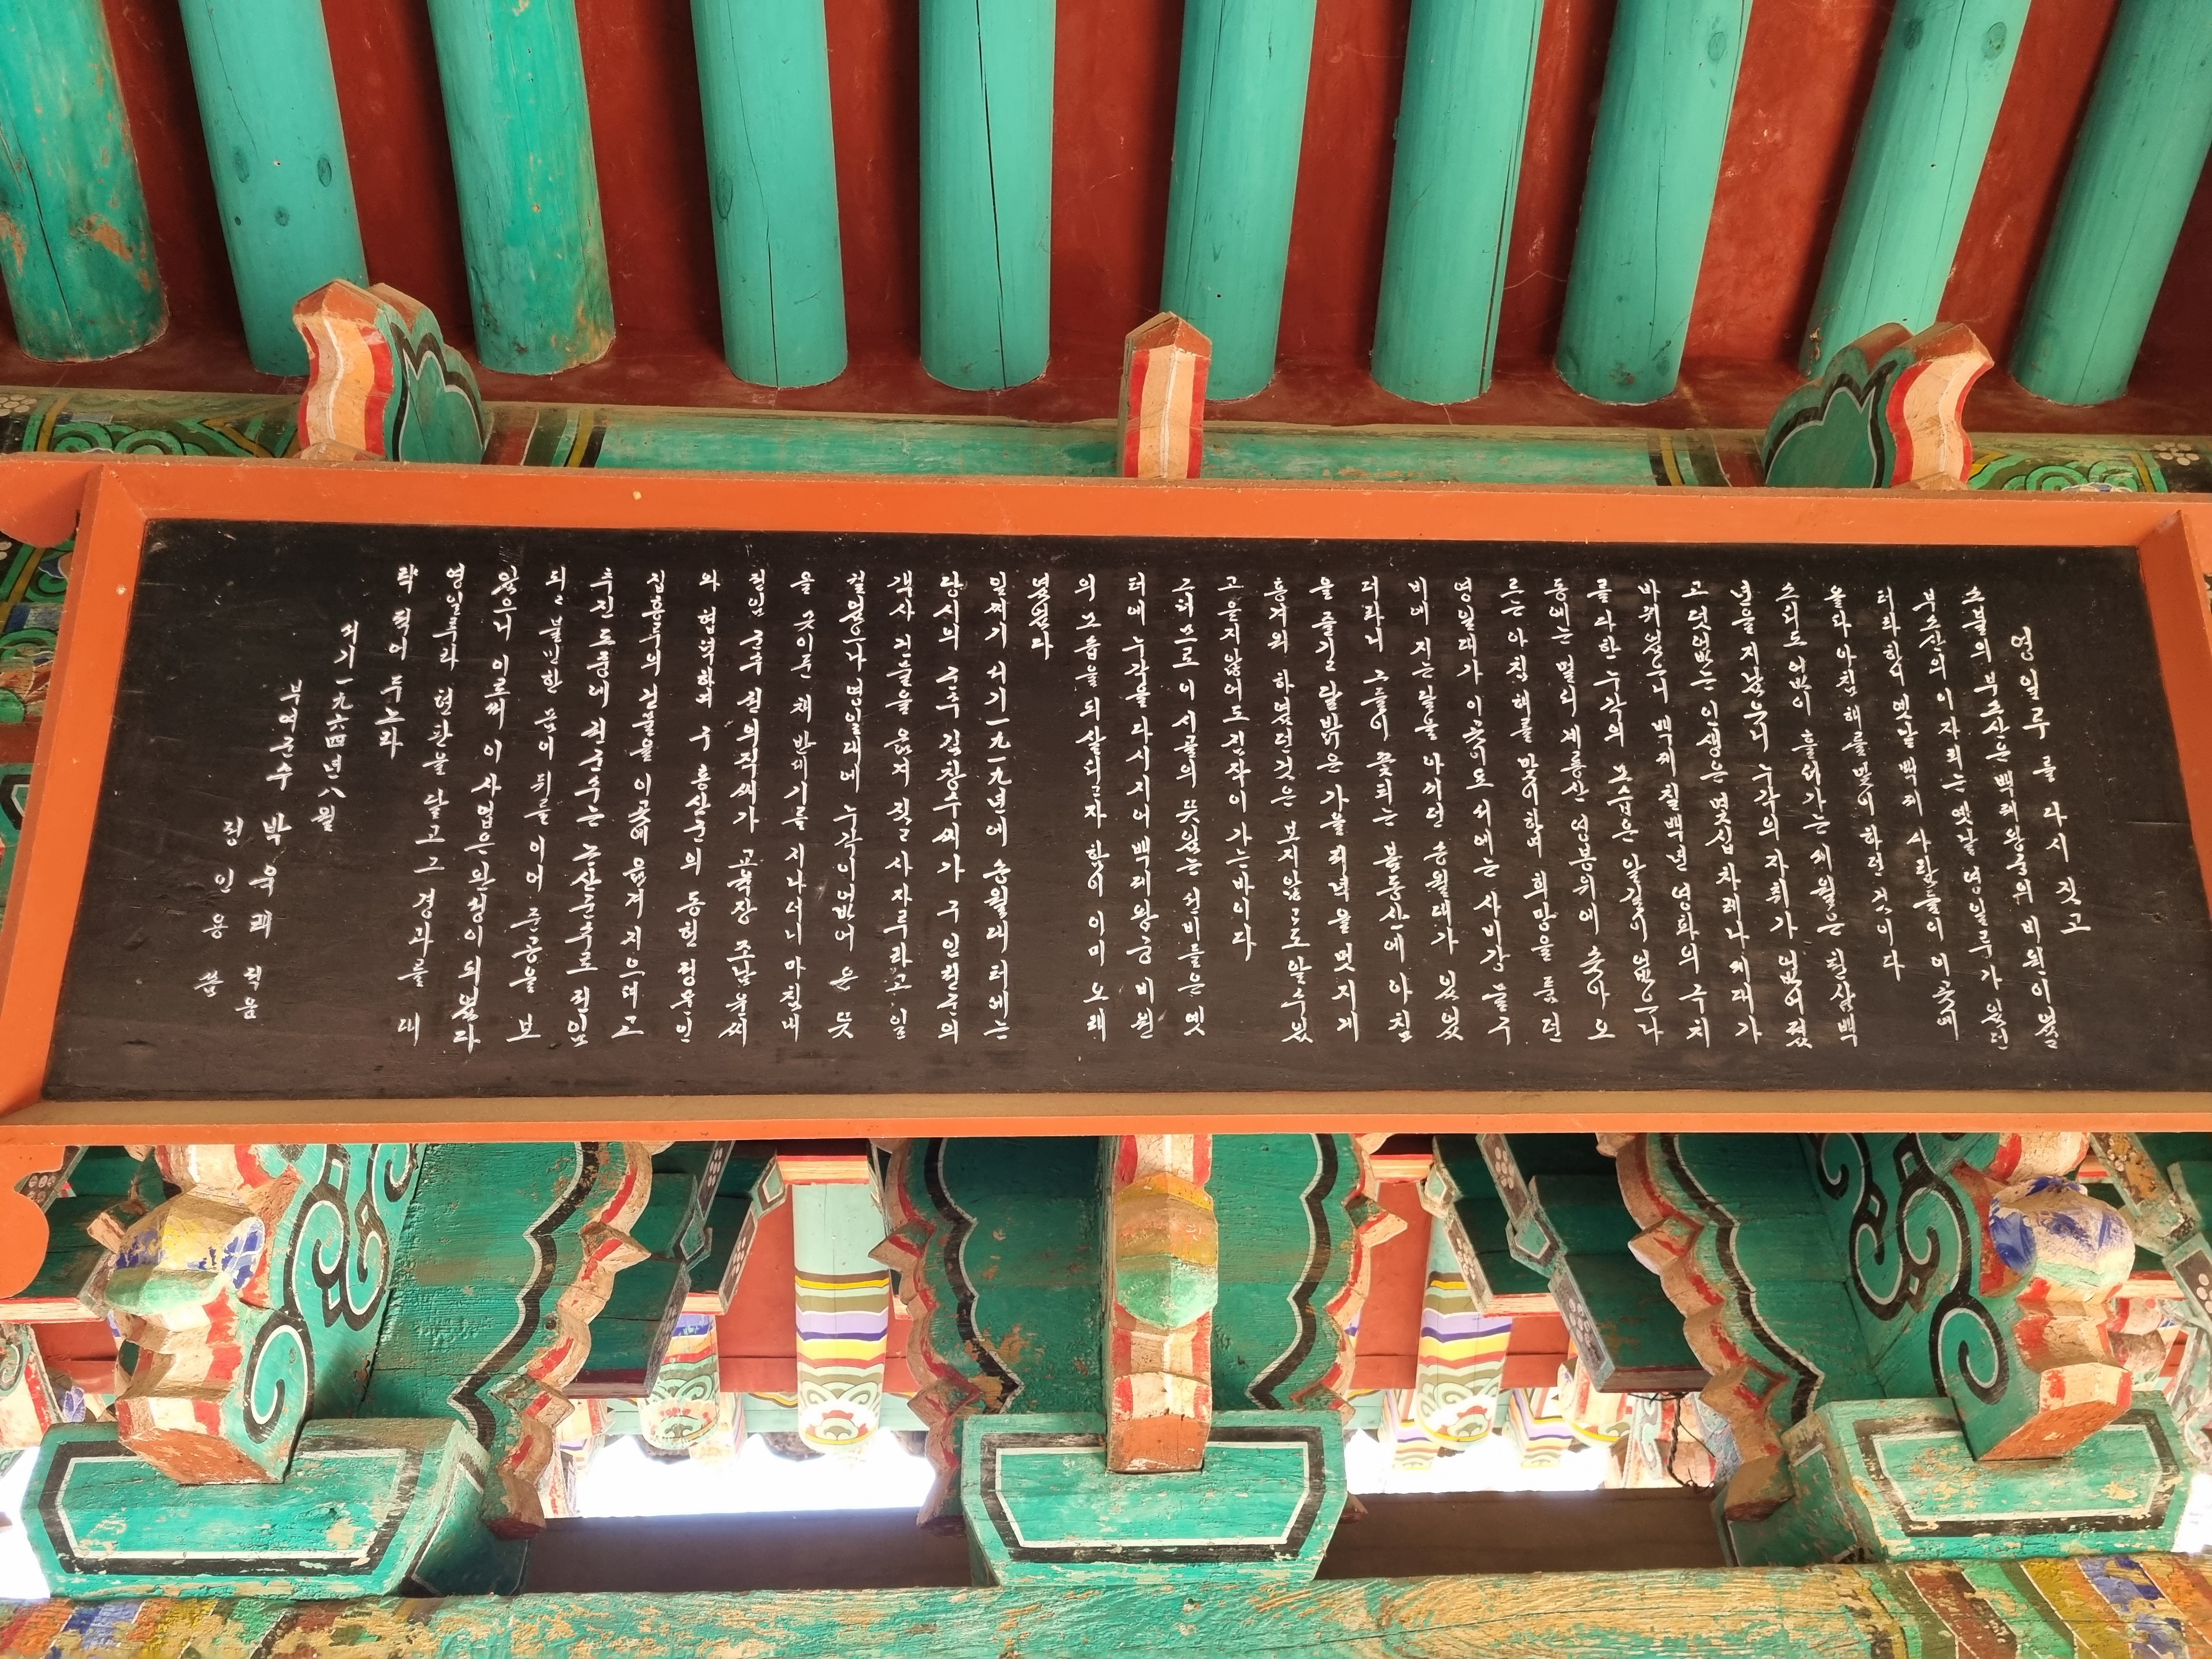 영일루를 다시 짓고
소불의 부소산은 백제왕궁의 비원이였
부소산의 이자리는 옛날 영일루가 있던
터라 하니 옛날 백제 사람들이 이곳에
올라 아침해를 맞이하던 곳이다
소리도 없이 흘러가는 세월은 천삼백
년을 지났으니 누각의 자취가 없어졌
고 변했는
바뀌였으니 백제 칠백년 영화의
를 다한 누각의 모습은 알길이 없으나
동에는 멀리 계룡산 연봉위의 솟아 오
르는 아침해를 맞이하며 희망을 품던
영일대가 이곳이요 서에는 사비강 물구
비에 지는달을 아끼던 송월대가 있었
더라니 그들이 꽃피는 봄동산에 아침
을 즐기고 달밝은 가을 저녁을 멋지게
즐겨워 하였던것은 보지않고도 알수있
고 듣지않어도 짐작이 가는바이다
그러므로 이 시골의 뜻있는 선비들은 옛
터에 누각을 다시지어 백제왕궁 비원
의 모습을 되살리고자 함이 이미 오래
였었다
일찌기 서기 一九一九년에 송월대 터에는
당시의 군수 김창수씨가 구 임천군의
객사 건물을 옮겨 짓고 사자루라고 일
컬렀으나 영일대에 누각이없어 온 뜻
을 못이룬 채 반세기를 지나더니 마침내
전임 군수 씨가 고적장 조남윤씨
와 협력하여 구 홍산군의 동헌 정문인
집홍루의 건물을 이곳에 옮겨 지으려고
추진 도중에 최군수는 논산군수로 전임
되고 불민한 몸이 뒤를 이어 준공을 보
았으니 이로써 이 사업은 완성이 되였다
영일루라 현판을 달고 그 경과를 대
략 적어 두노라
서기一九六四년八월
부여군수 박욱래 적음
정인용 씀